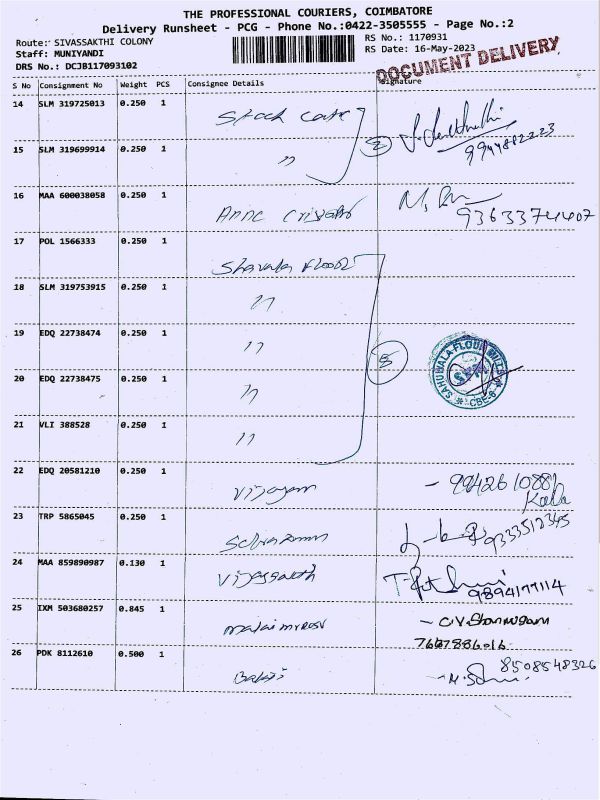 THE PROFESSIONAL COURIERS, COIMBATORE
Delivery Runsheet - PCG - Phone No.:0422-3505555 - Page No.:2
Route: SIVASSAKTHI COLONY RS No.: 1170931
Staff: MUNIYANDI RS Date: 16-May-2023
DRS No.: DCJB117093102
DOCUMENT DELIVERY
S No Consignment No Weight PCS Consignee Details Signature
14 SLM 319725013 0.250 1 Stock
15 SLM 319699914 0.250 1 "
2
9944882223
16 MAA 600038058 0.250 1
9363374407
17 POL 1566333 0.250 1
18 SLM 319753915 0.250 1 "
19 EDQ 22738474 0.250 1 "
20 EDQ 22738475 0.250 1 "
5
SAHUWALA FLOUR MILLS
CBE-6
21 VLI 388528 0.250 1 "
22 EDQ 20581210 0.250 1 Vijayam - 9942610881
Kala
23 TRP 5865045 0.250 1 9333512345
24 MAA 859890987 0.130 1 Vijayasakthi
9894177114
25 IXM 503680257 0.845 1 - C.V. Shanmugam
7667886016
26 PDK 8112610 0.500 1 Balaji 8508548326